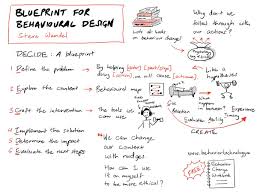 BLUEPRINT FOR
BEHAVIOURAL DESIGN
Steve Wendel
Lots of books
on behaviour change!
Why don't we
follow through with
our actions?
DECIDE: A blueprint
1 Define the problem
By helping [actor] [start/stop]
doing [action], we will cause [outcome]
2 Explore the context
Behavioural map
3 Craft the intervention
The tools we
can use
Experience
Timing
Evaluation
Ability
CREATE
4 Implement the solution
5 Determine the impact
6 Evaluate the next steps
We can change
our context
with nudges
How can I use
it on myself
to be more ethical?
FREE
Behaviour
Change
Workbook